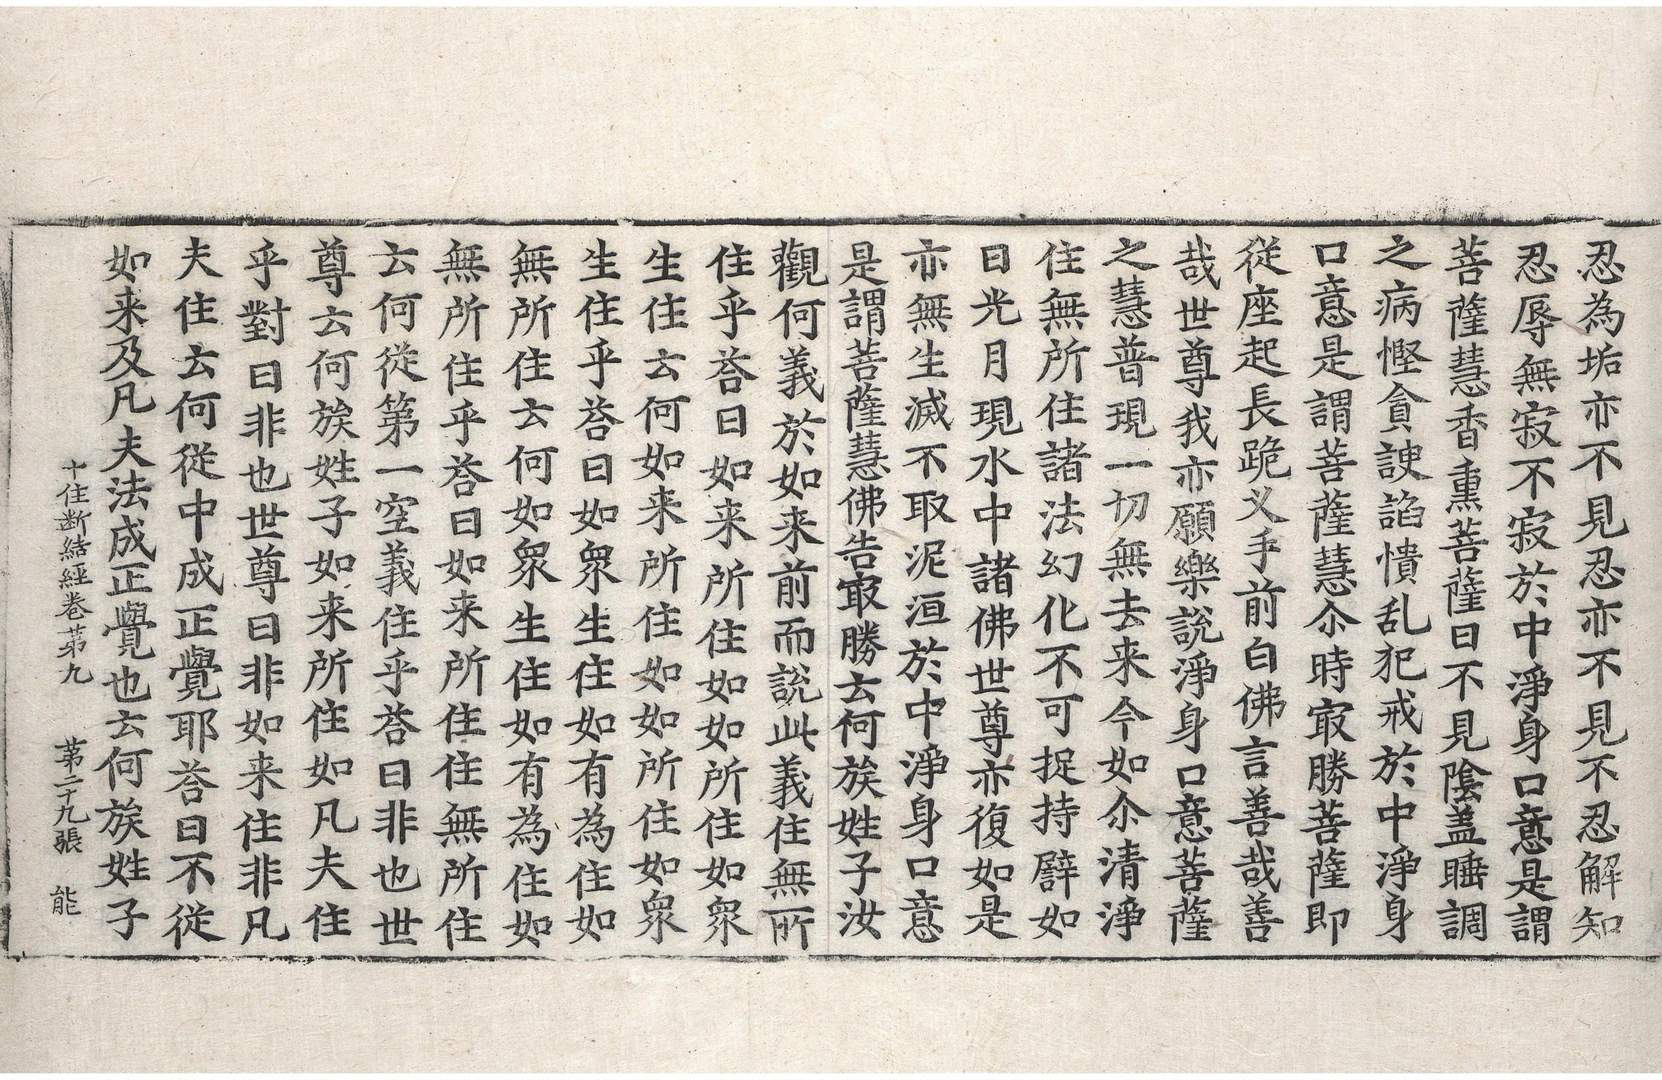 忍為垢亦不見忍亦不見不忍解知
忍辱無寂不寂於中淨身口意是謂
菩薩慧香熏菩薩曰不見陰蓋睡調
之病慳貪諛諂憒乱犯戒於中淨身
口意是謂菩薩慧尒時㝡勝菩薩即
從座起長跪叉手前白佛言善哉善
哉世尊我亦願樂說淨身口意菩薩
之慧普現一切無去来今如尒清淨
住無所住諸法幻化不可捉持譬如
日光月現水中諸佛世尊亦復如是
亦無生滅不取泥洹於中淨身口意
是謂菩薩慧佛告㝡勝云何族姓子汝
觀何義於如来前而說此義住無所
住乎荅曰如来所住如如所住如衆
生住云何如来所住如如所住如衆
生住乎荅曰如衆生住如有為住如
無所住云何如衆生住如有為住如
無所住乎荅曰如来所住住無所住
云何從第一空義住乎荅曰非也世
尊云何族姓子如来所住如凡夫住
乎對曰非也世尊曰非如来住非凡
夫住云何從中成正覺耶荅曰不從
如来及凡夫法成正覺也云何族姓子
十住断結經卷苐九　苐二十九張　能